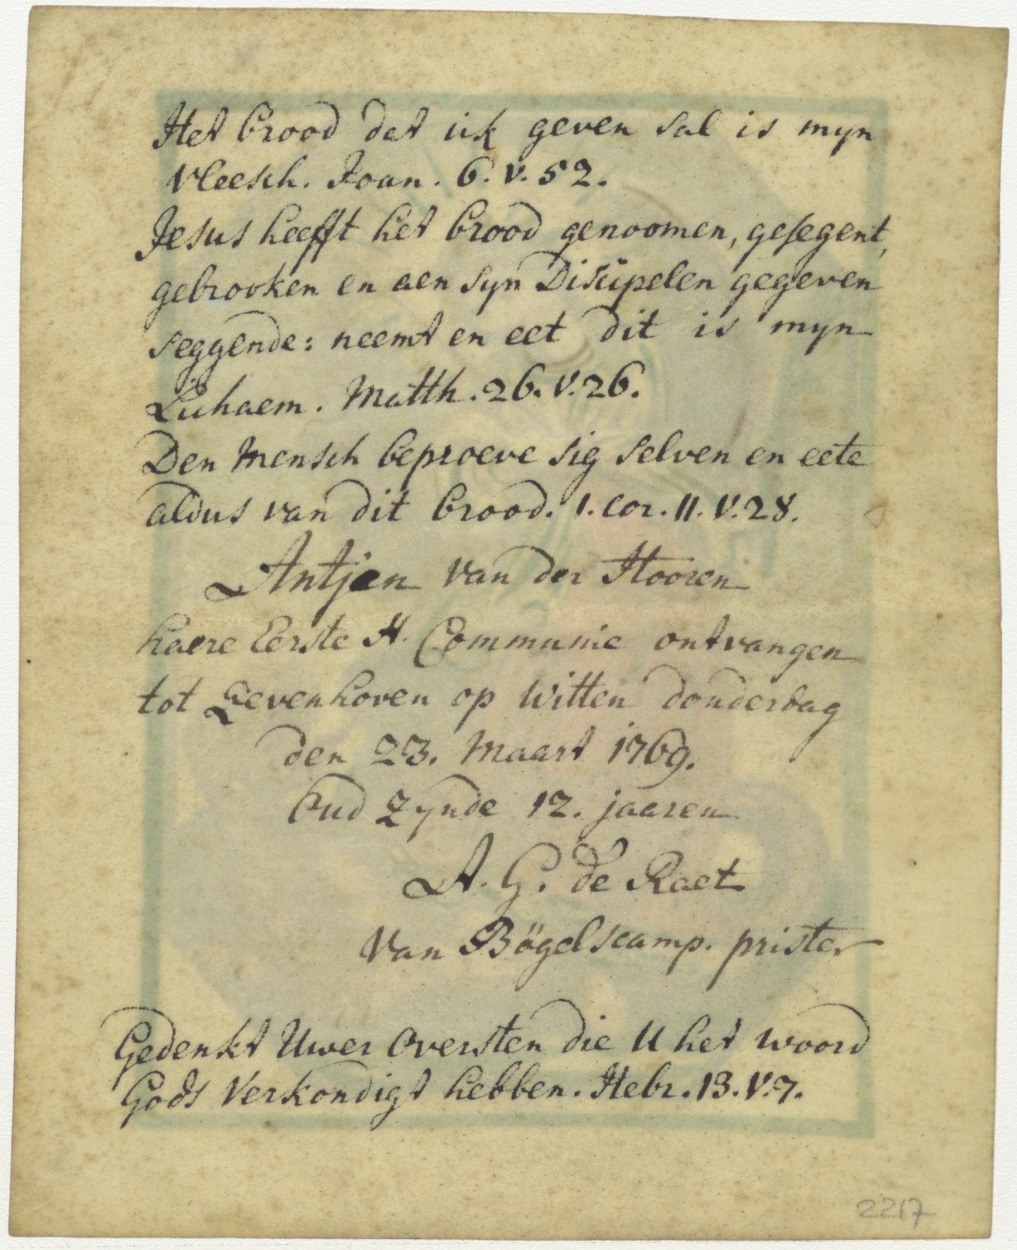 Het brood dat iik geven sal is myn
vleesch. Joan. 6. v. 52.
Jesus heefft het brood genoomen, gesegent,
gebrooken en aen syn Discipelen gegeven
seggende: neemt en eet dit is myn
Lichaem. Matth. 26. v. 26.
Den Mensch beproeve sig selven en eete
aldus van dit brood. 1. cor. 11. v. 28.
Antjen van der Hooren
haere Eerste H. Communie ontvangen
tot Zevenhoven op Witten donderdag
den 23. Maart 1769.
Oud Zynde 12. jaaren
A. G. de Raet
Van Bögelscamp. prister
Gedenkt Uwer Oversten die U het woord
Gods Verkondigt hebben. Hebr. 13. v. 7.
2217